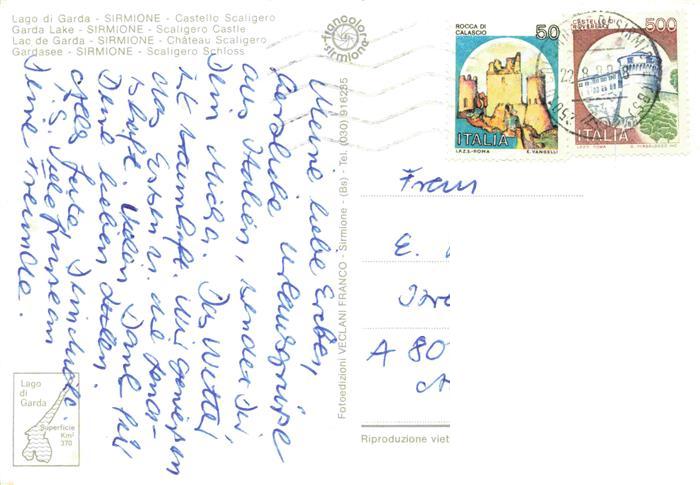 Lago di Garda - SIRMIONE - Castello Scaligero
Garda Lake - SIRMIONE - Scaligero Castle
Lac de Garda - SIRMIONE - Château Scaligero
Gardasee - SIRMIONE - Scaligero Schloss
francolor
sirmione
ROCCA DI
CALASCIO
50
ITALIA
I.P.Z.S.-ROMA E. VANGELLI
CASTELLO DI
ROVERETO
500
ITALIA
Meine liebe
herzliche Urlaubsgrüße
aus Italien, sendet Dir
Dein Micha. Das Wetter
ist traumhaft. Wir geniessen
das Essen u. die
Vielen Dank für
Deine lieben Zeilen.
Alles Gute
Deine Freunde.
Fotoedizioni VECLANI FRANCO - Sirmione - (Bs) - Tel. (030) 916285
Frau
E.
A 80
Lago
di
Garda
Superficie
Km²
370
Riproduzione viet